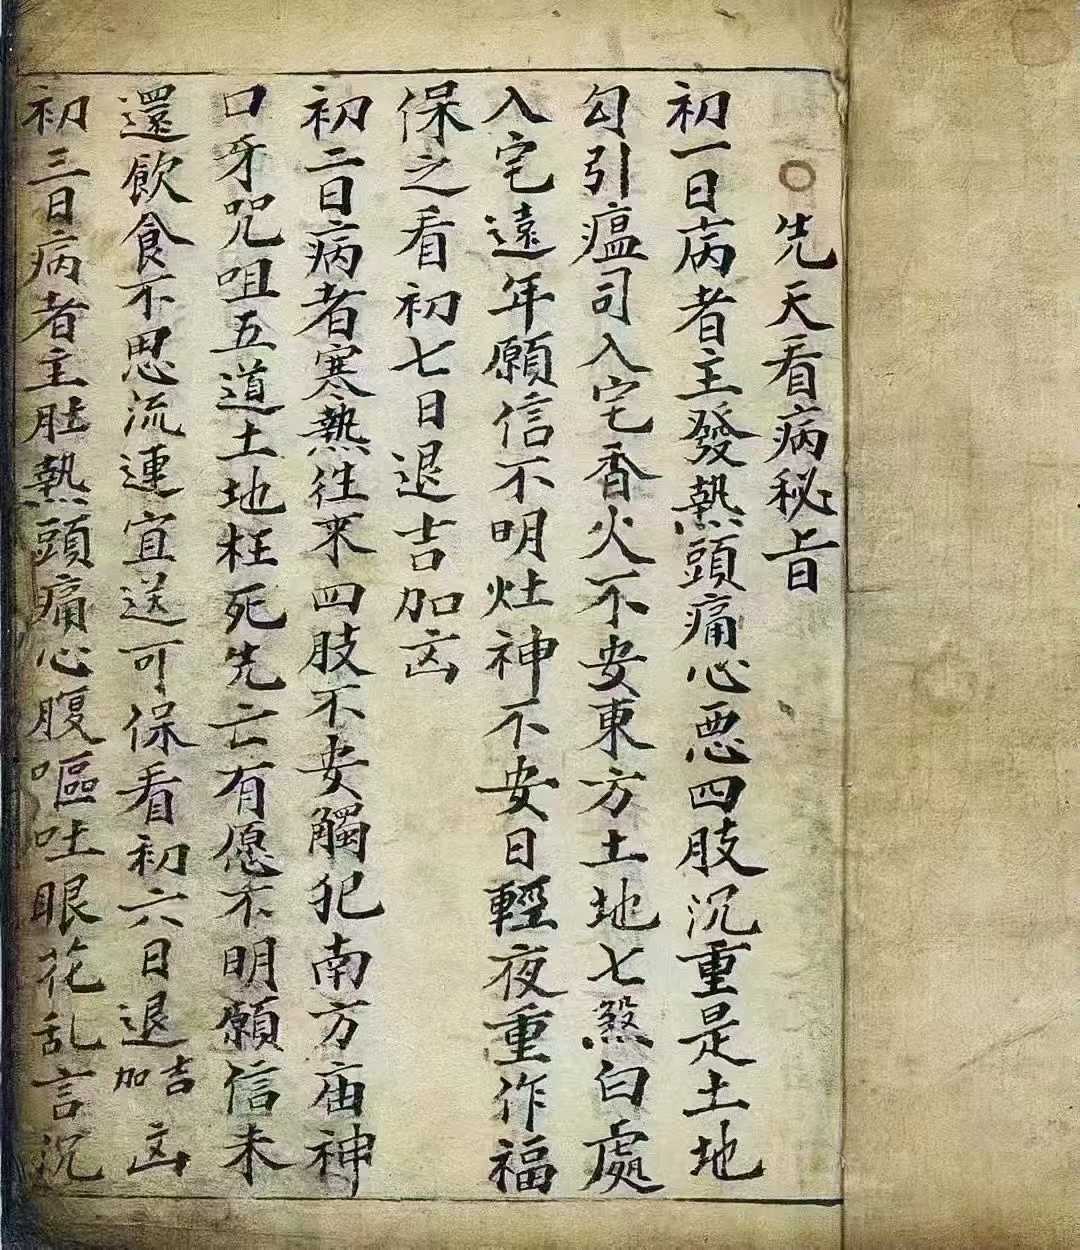 ○先天看病秘旨
初一日病者主發熱頭痛心悪四肢沉重是土地
勾引瘟司入宅香火不安東方土地七煞白處
入宅遠年願信不明灶神不安日輕夜重作福
保之看初七日退吉加凶
初二日病者寒熱往来四肢不安觸犯南方庙神
口牙咒咀五道土地枉死先亡有愿不明願信未
還飲食不思流連宜送可保看初六日退吉加凶
初三日病者主肚熱頭痛心腹嘔吐眼花乱言沉